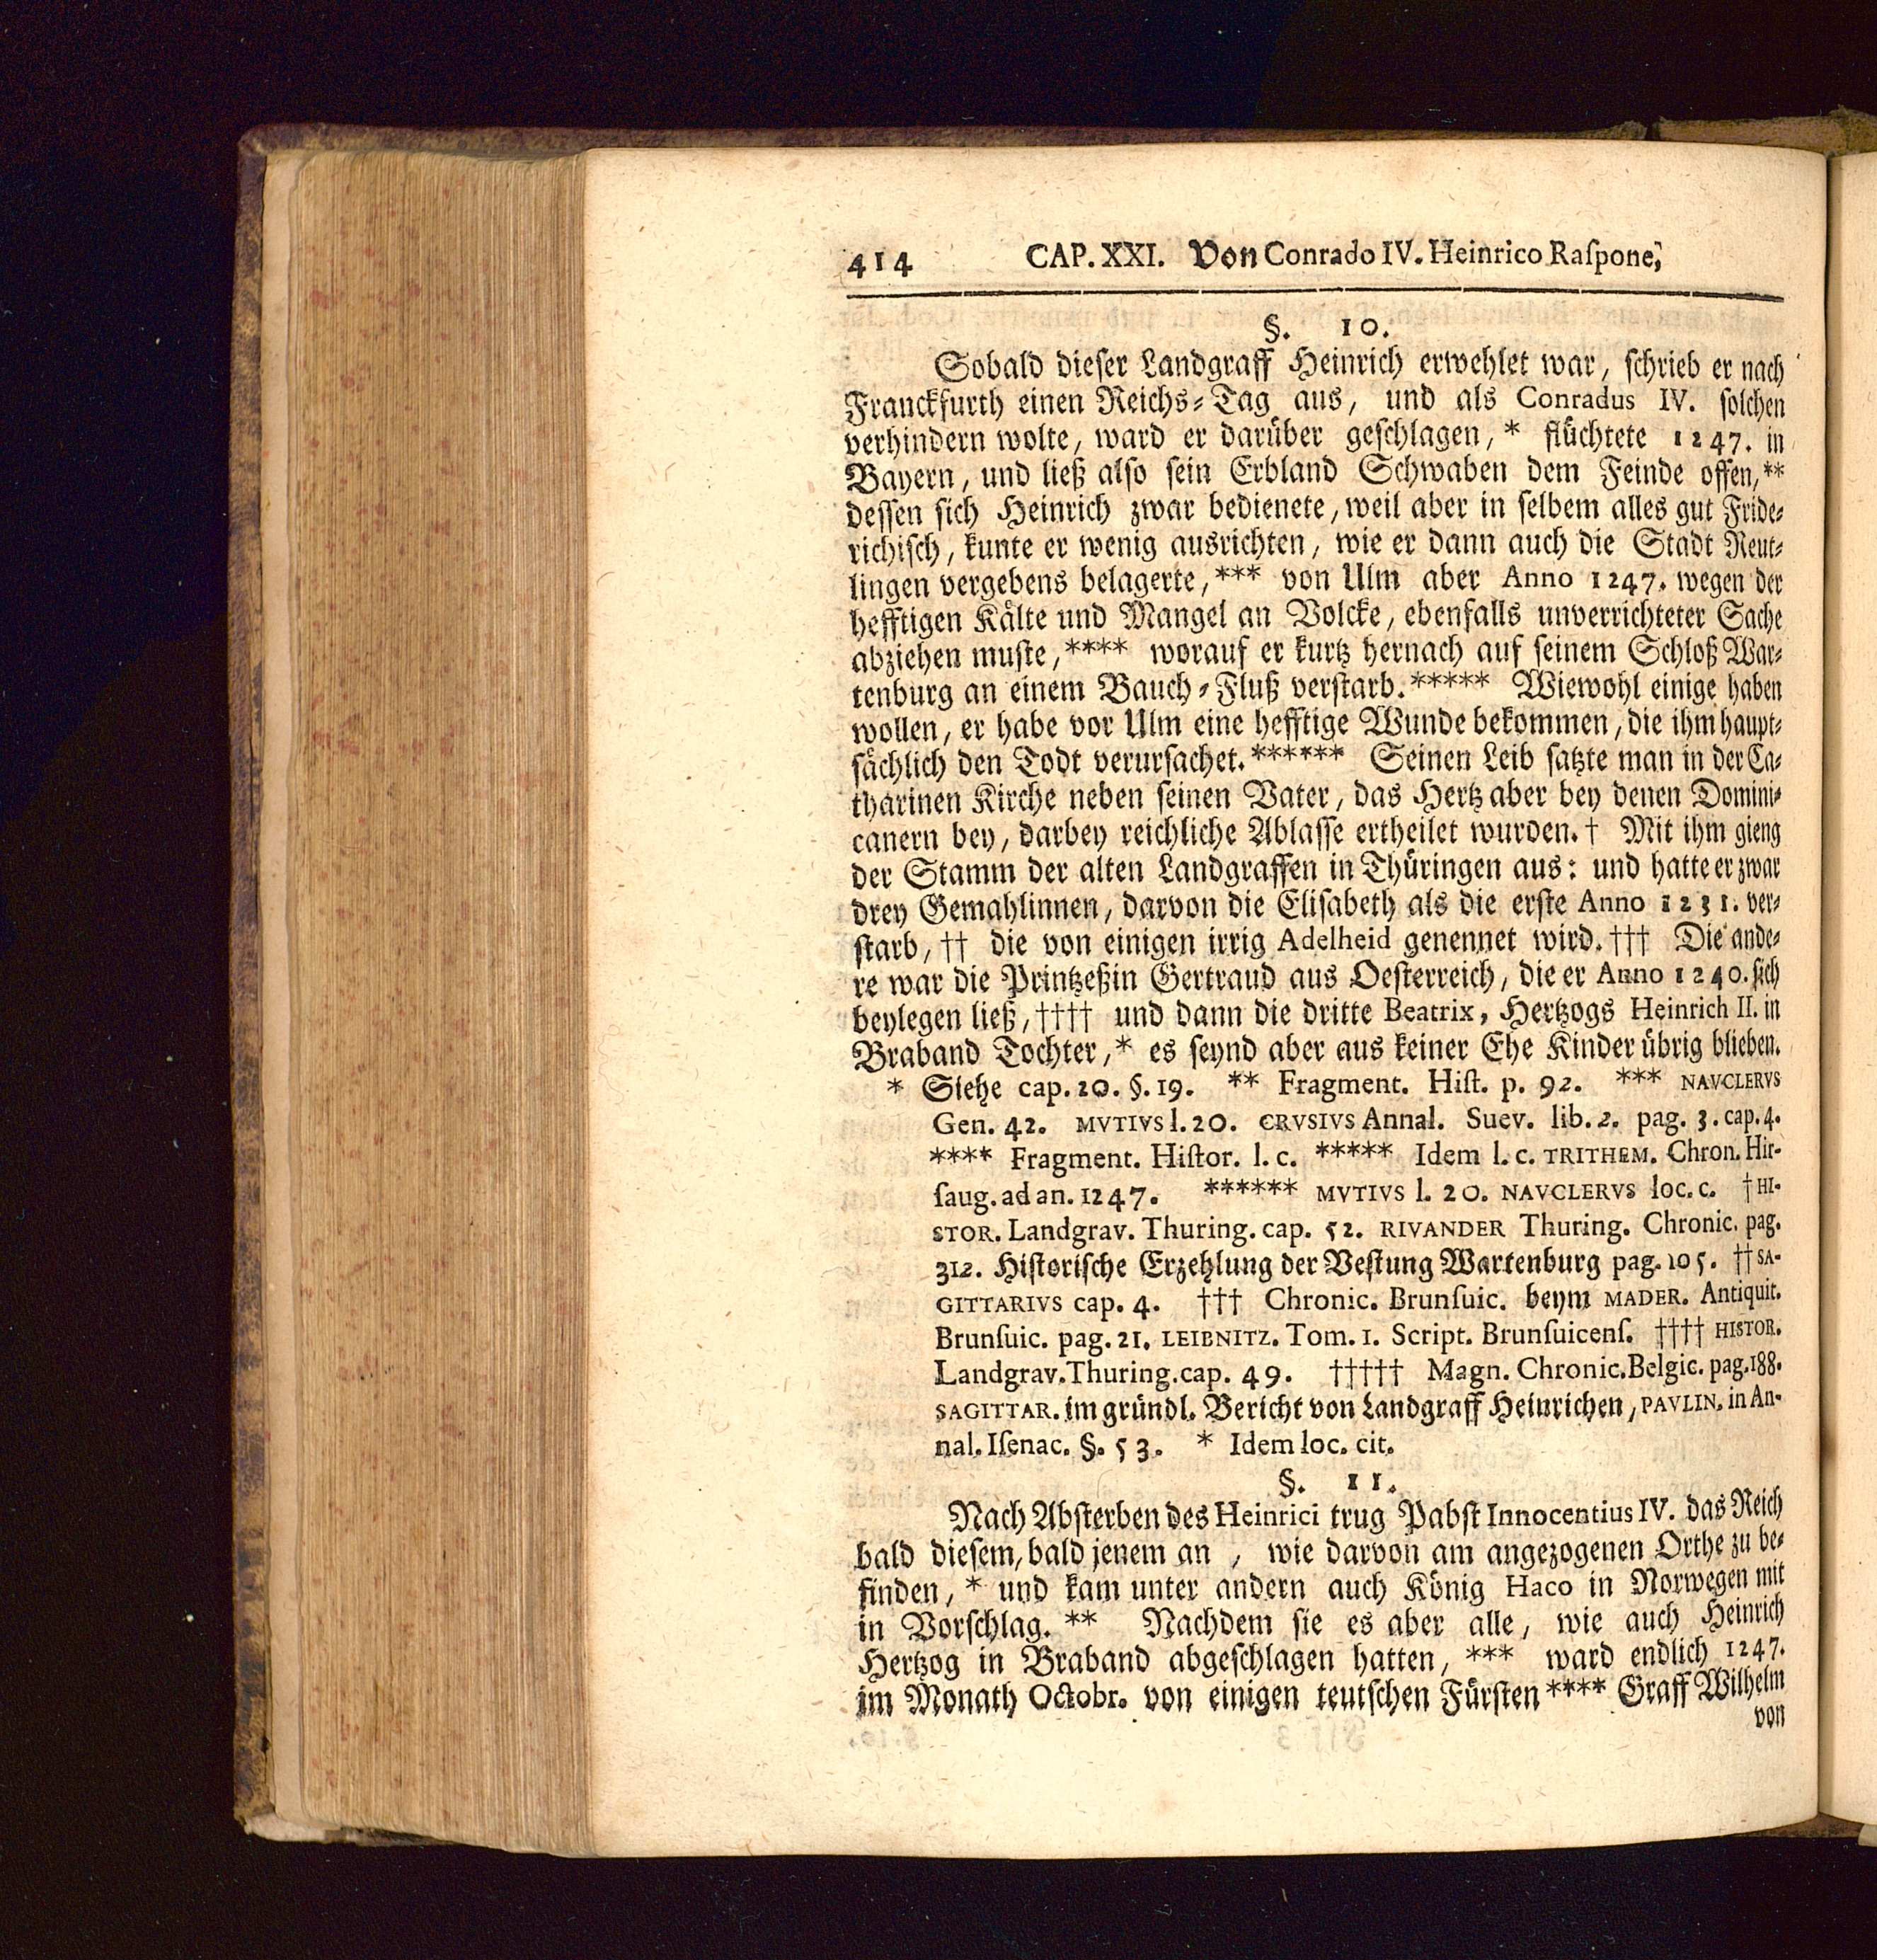 414 CAP. XXI. Von Conrado IV. Heinrico Raſpone,
§. 10.
Sobald dieſer Landgraff Heinrich erwehlet war, ſchrieb er nach
Franckfurth einen Reichs-Tag aus, und als Conradus IV. ſolchen
verhindern wolte, ward er darüber geſchlagen, * flüchtete 1247. in
Bayern, und ließ alſo ſein Erbland Schwaben dem Feinde offen, **
deſſen ſich Heinrich zwar bedienete, weil aber in ſelbem alles gut Fride-
richiſch, kunte er wenig ausrichten, wie er dann auch die Stadt Reut-
lingen vergebens belagerte, *** von Ulm aber Anno 1247. wegen der
hefftigen Kälte und Mangel an Volcke, ebenfalls unverrichteter Sache
abziehen muſte, **** worauf er kurtz hernach auf ſeinem Schloß War-
tenburg an einem Bauch-Fluß verſtarb. ***** Wiewohl einige haben
wollen, er habe vor Ulm eine hefftige Wunde bekommen, die ihm haupt-
ſächlich den Todt verurſachet. ****** Seinen Leib ſatzte man in der Ca-
tharinen Kirche neben ſeinen Vater, das Hertz aber bey denen Domini-
canern bey, darbey reichliche Ablaſſe ertheilet wurden. † Mit ihm gieng
der Stamm der alten Landgraffen in Thüringen aus: und hatte er zwar
drey Gemahlinnen, darvon die Eliſabeth als die erſte Anno 1231. ver-
ſtarb, †† die von einigen irrig Adelheid genennet wird. ††† Die ande-
re war die Printzeßin Gertraud aus Oeſterreich, die er Anno 1240. ſich
beylegen ließ, †††† und dann die dritte Beatrix, Hertzogs Heinrich II. in
Braband Tochter, * es ſeynd aber aus keiner Ehe Kinder übrig blieben.
* Siehe cap. 20. §. 19. ** Fragment. Hiſt. p. 92. *** NAVCLERVS
Gen. 42. MVTIVS l. 20. CRVSIVS Annal. Suev. lib. 2. pag. 3. cap. 4.
**** Fragment. Hiſtor. l. c. ***** Idem l. c. TRITHEM. Chron. Hir-
ſaug. ad an. 1247. ****** MVTIVS l. 20. NAVCLERVS loc. c. † HI-
STOR. Landgrav. Thuring. cap. 52. RIVANDER Thuring. Chronic. pag.
312. Hiſtoriſche Erzehlung der Veſtung Wartenburg pag. 105. †† SA-
GITTARIVS cap. 4. ††† Chronic. Brunſuic. beym MADER. Antiquit.
Brunſuic. pag. 21. LEIBNITZ. Tom. 1. Script. Brunſuicenſ. †††† HISTOR.
Landgrav. Thuring. cap. 49. ††††† Magn. Chronic. Belgic. pag. 188.
SAGITTAR. im gründl. Bericht von Landgraff Heinrichen, PAVLIN. in An-
nal. Iſenac. §. 53. * Idem loc. cit.
§. 11.
Nach Abſterben des Heinrici trug Pabſt Innocentius IV. das Reich
bald dieſem, bald jenem an, wie darvon am angezogenen Orthe zu be-
finden, * und kam unter andern auch König Haco in Norwegen mit
in Vorſchlag. ** Nachdem ſie es aber alle, wie auch Heinrich
Hertzog in Braband abgeſchlagen hatten, *** ward endlich 1247.
im Monath Octobr. von einigen teutſchen Fürſten **** Graff Wilhelm
von